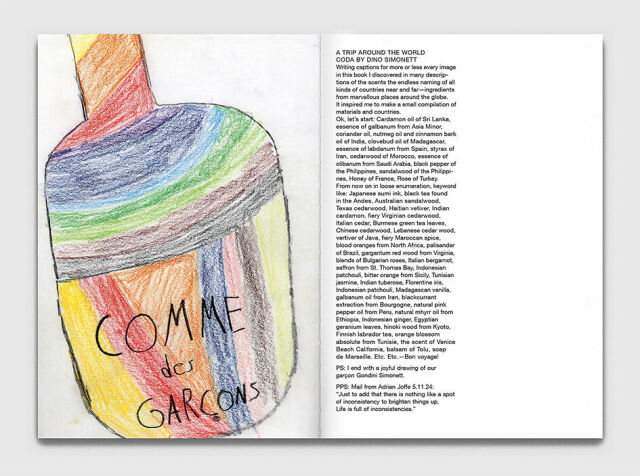 COMME
des
GARÇONS
A TRIP AROUND THE WORLD
CODA BY DINO SIMONETT
Writing captions for more or less every image
in this book I discovered in many descrip-
tions of the scents the endless naming of all
kinds of countries near and far—ingredients
from marvellous places around the globe.
It inspired me to make a small compilation of
materials and countries.
Ok, let's start: Cardamon oil of Sri Lanka,
essence of galbanum from Asia Minor,
coriander oil, nutmeg oil and cinnamon bark
oil of India, clovebud oil of Madagascar,
essence of labdanum from Spain, styrax of
Iran, cedarwood of Morocco, essence of
olibanum from Saudi Arabia, black pepper of
the Philippines, sandalwood of the Philippi-
nes, Honey of France, Rose of Turkey.
From now on in loose enumeration, keyword
like: Japanese sumi ink, black tea found
in the Andes, Australian sandalwood,
Texas cedarwood, Haitian vetiver, Indian
cardamon, fiery Virginian cedarwood,
Italian cedar, Burmese green tea leaves,
Chinese cedarwood, Lebanese cedar wood,
vertiver of Java, fiery Maroccan spice,
blood oranges from North Africa, palisander
of Brazil, gargantum red wood from Virginia,
blends of Bulgarian roses, Italian bergamot,
saffron from St. Thomas Bay, Indonesian
patchouli, bitter orange from Sicily, Tunisian
jasmine, Indian tuberose, Florentine iris,
Indonesian patchouli, Madagascan vanilla,
galbanum oil from Iran, blackcurrant
extraction from Bourgogne, natural pink
pepper oil from Peru, natural mhyrr oil from
Ethiopia, Indonesian ginger, Egyptian
geranium leaves, hinoki wood from Kyoto,
Finnish labrador tea, orange blossom
absolute from Tunisie, the scent of Venice
Beach California, balsam of Tolu, soap
de Marseille. Etc. Etc.—Bon voyage!
PS: I end with a joyful drawing of our
garçon Gondini Simonett.
PPS: Mail from Adrian Joffe 5.11.24:
"Just to add that there is nothing like a spot
of inconsistency to brighten things up.
Life is full of inconsistencies."